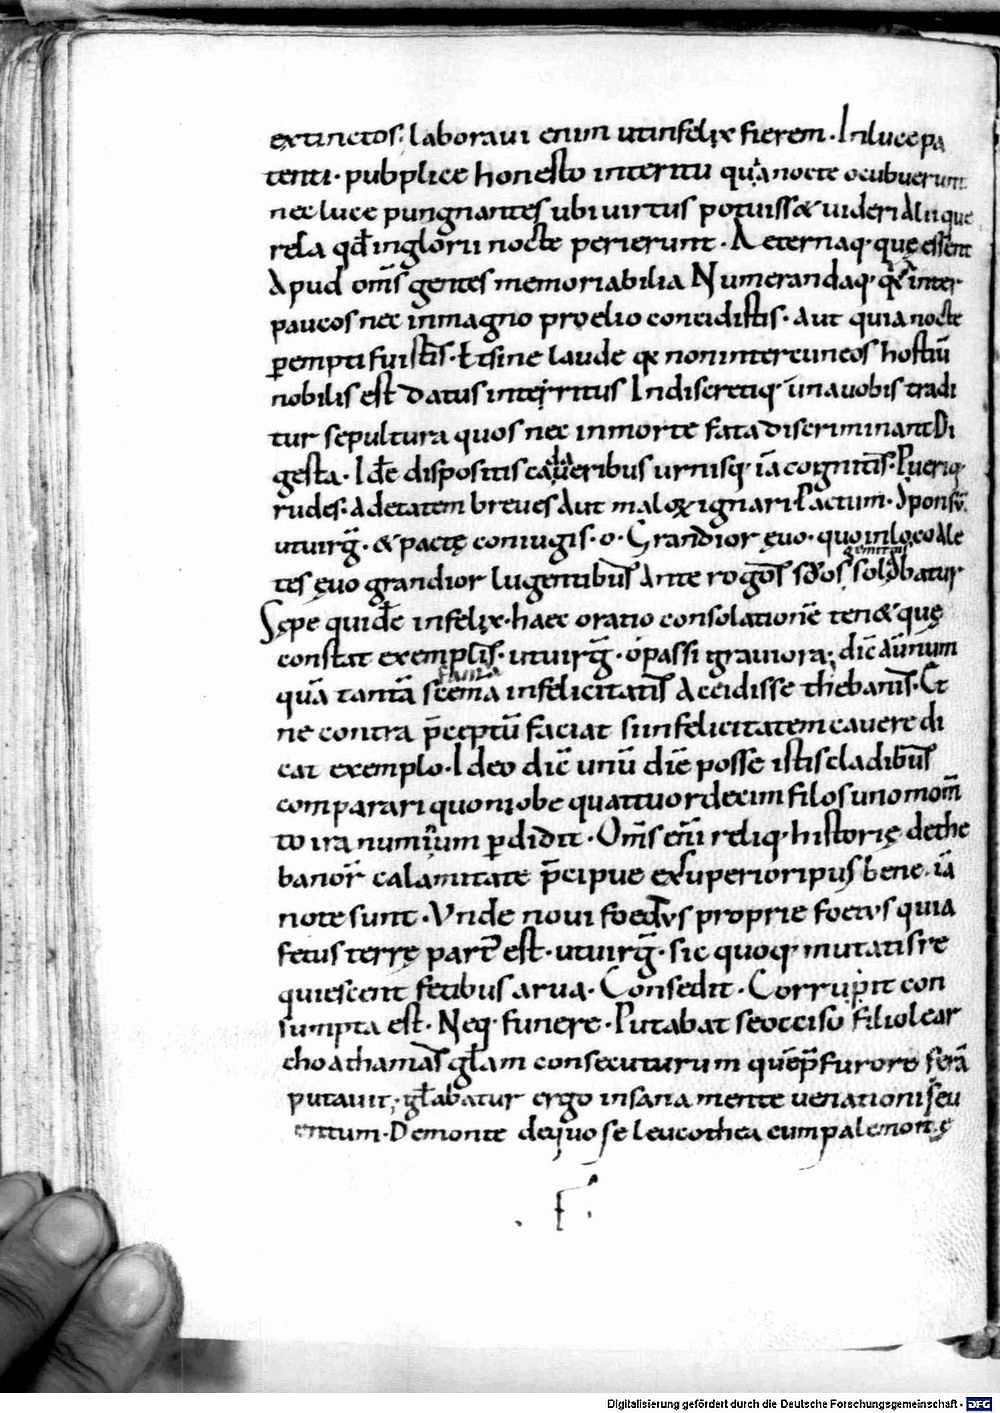 extinctos; laboraui enim utinfelix fierem · Inluce pa
tenti · pubplice honesto interitu quia nocte ocubuerunt
nec luce pungnantes ubi uirtus potuiss& uideri Alii que
rela qđ inglorii nocte perierunt · Aeternaq· quę essent
Apud om̄s gentes memoriabilia Numerandaq· inter
paucos nec inmagno proelio concidistis · aut quia nocte
ꝑempti fuistis · Et sine laude non inter cuneos hostiū
nobilis est datus interritus Indiscretiq· una uobis tradi
tur sepultura quos nec inmorte fata discriminant Di
gesta · Idē dispositis ueribus urnisq· iā cognitis · Pueriq·
rudes · Adetatem breues Aut maloꝝ ignari · Pactum · Sponsū
utuirḡ · & pactę coniugis · o · Grandior ęuo · quo inloco Ale
tes ęuo grandior lugentibus Ante rogos solabatur
Sępe quidē infelix · haec oratio consolationē ten& quę
constat exemplis · utuirḡ · o passi grauiora; dic̄ aūnum
quā tantā scema infelicitatis Accidisse thebanis · Et
ne contra p̄ceptū faciat s̄infelicitatem cauere di
cat exemplo · Ideo dic̄ unū diē posse istis cladibus
comparari quo niobe quattuordecim filos uno mom̄
to ira numinum ꝑdidit · Om̄s enī reliq· historię dethe
banor̄ calamitate p̄cipue ex superioripus bene · iā
note sunt · Vnde noui foedus proprie foetus quia
fetus terrę part̄ est · utuirḡ · sic quoq· mutatis re
quiescent fetibus arua · Consedit · Corrupit con
sumpta est · Neq· funere · Putabat se occiso filio lear
cho athamas głam consecuturum quē p̄ furore ferā
putauit; głabatur ergo insana mente uenationi seu
entum · Demonte dequo se leucothea cum palemonę